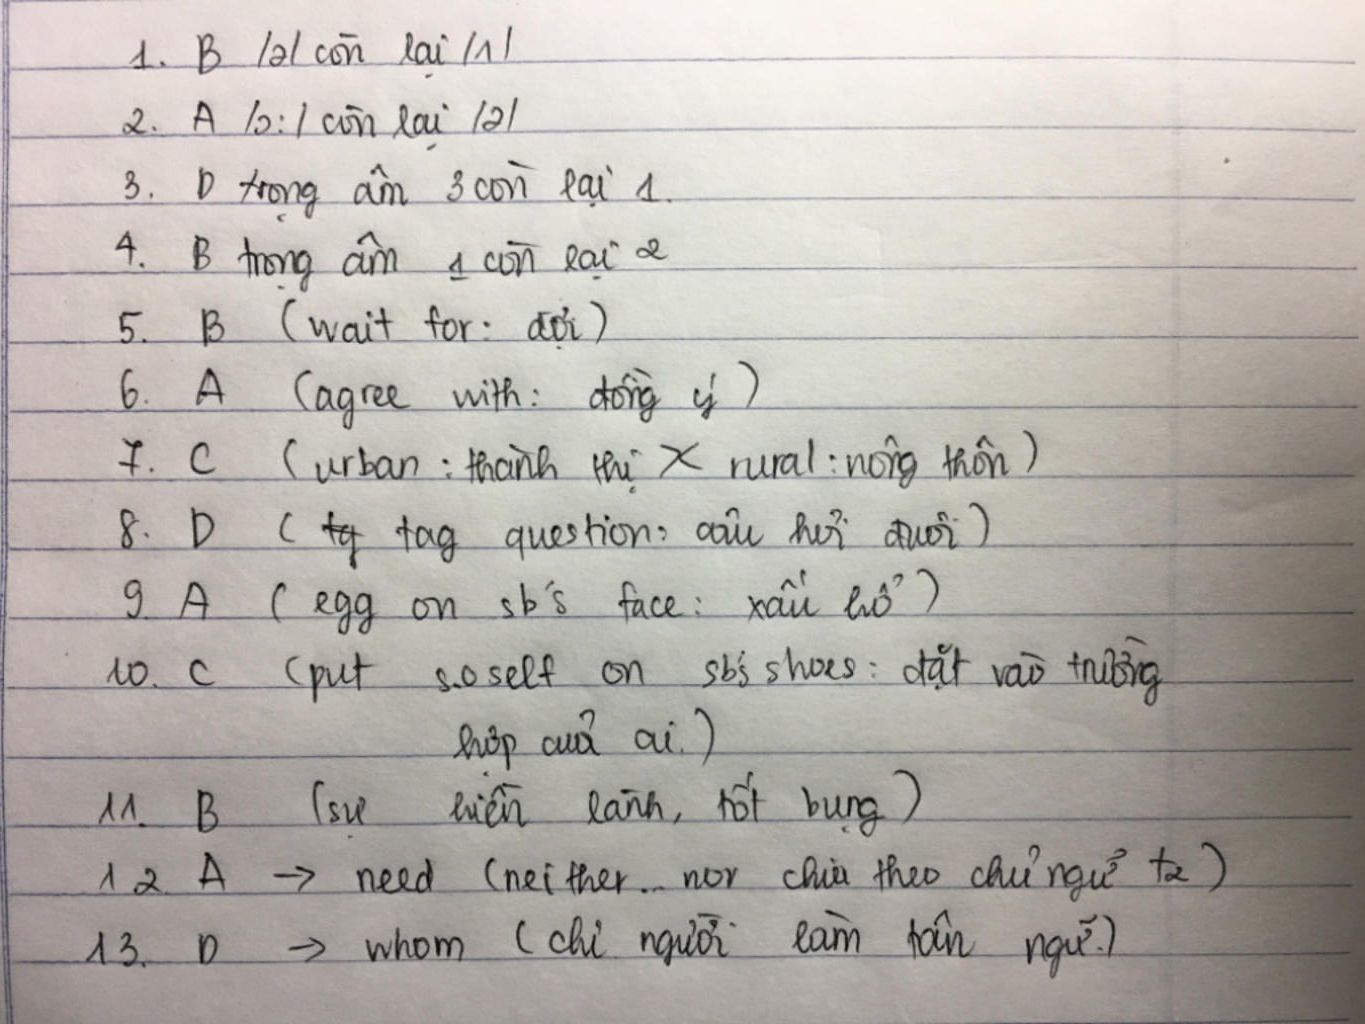 1. B /ə/ còn lại /ʌ/
2. A /ɔ:/ còn lại /ə/
3. D trọng âm 3 còn lại 1.
4. B trọng âm 1 còn lại 2
5. B (wait for: đợi)
6. A (agree with: đồng ý)
7. C (urban : thành thị X rural : nông thôn)
8. D ( tq tag question: câu hỏi đuôi)
9 A ( egg on sb's face: xấu hổ)
10. C (put s.o self on sb's shoes: đặt vào trường
hợp của ai.)
11. B (sự hiền lành, tốt bụng)
12. A → need (neither... nor chia theo chủ ngữ t2)
13. D → whom (chỉ người làm tân ngữ.)